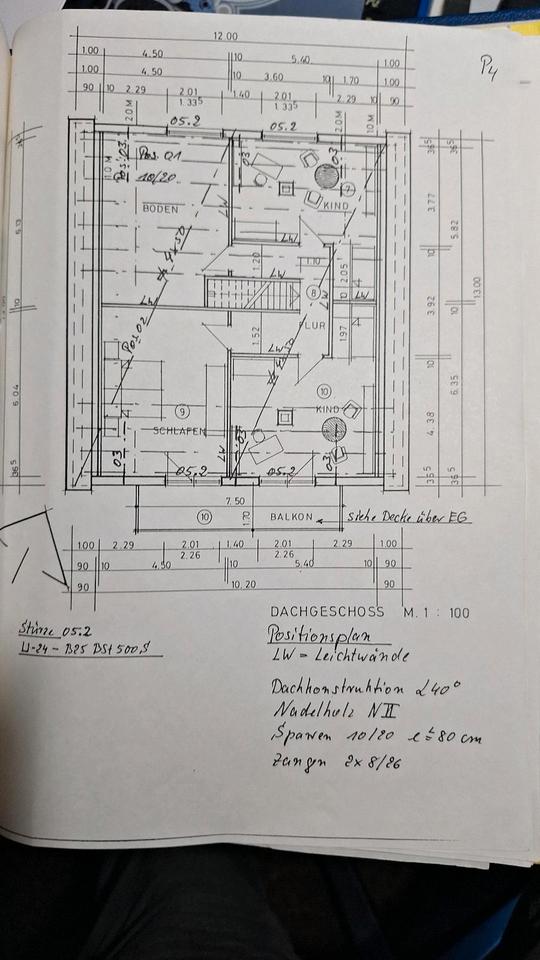 P4
12.00
1.00 4.50 10 5.40 1.00
1.00 4.50 10 3.60 10 1.70 1.00
90 10 2.29 2.01 1.40 2.01 2.29 10 90
1.33⁵ 1.33⁵
2.0M 2.0M 10M
05.2 05.2
36⁵ 36⁵
10M Pos. 03 Pos. 01 03 03
10/20 7
BODEN KIND
LW
3.77
5.82
LW
10
1.20 1.10 2.05
8 LW
10 LW
LW
13.00
3.92 10
FLUR
Pos 02 1.52 1.97
LW
10
10
6.35
KIND
9
6.04
4.38
SCHLAFEN
LW
03 03 03
05.2 05.2
36⁵ 36⁵ 36⁵
7.50
10 1.70 BALKON siehe Decke über EG
1.00 2.29 2.01 1.40 2.01 2.29 1.00
2.26 2.26
90 10 4.50 10 5.40 10 90
90 10,20 90
DACHGESCHOSS M. 1 : 100
Stürze 05.2
U-24 - B25 BSt 500,S
Positionsplan
LW = Leichtwände
Dachkonstruktion ∠40°
Nadelholz N II
Sparren 10/20 e ≤ 80 cm
Zangen 2x 8/26